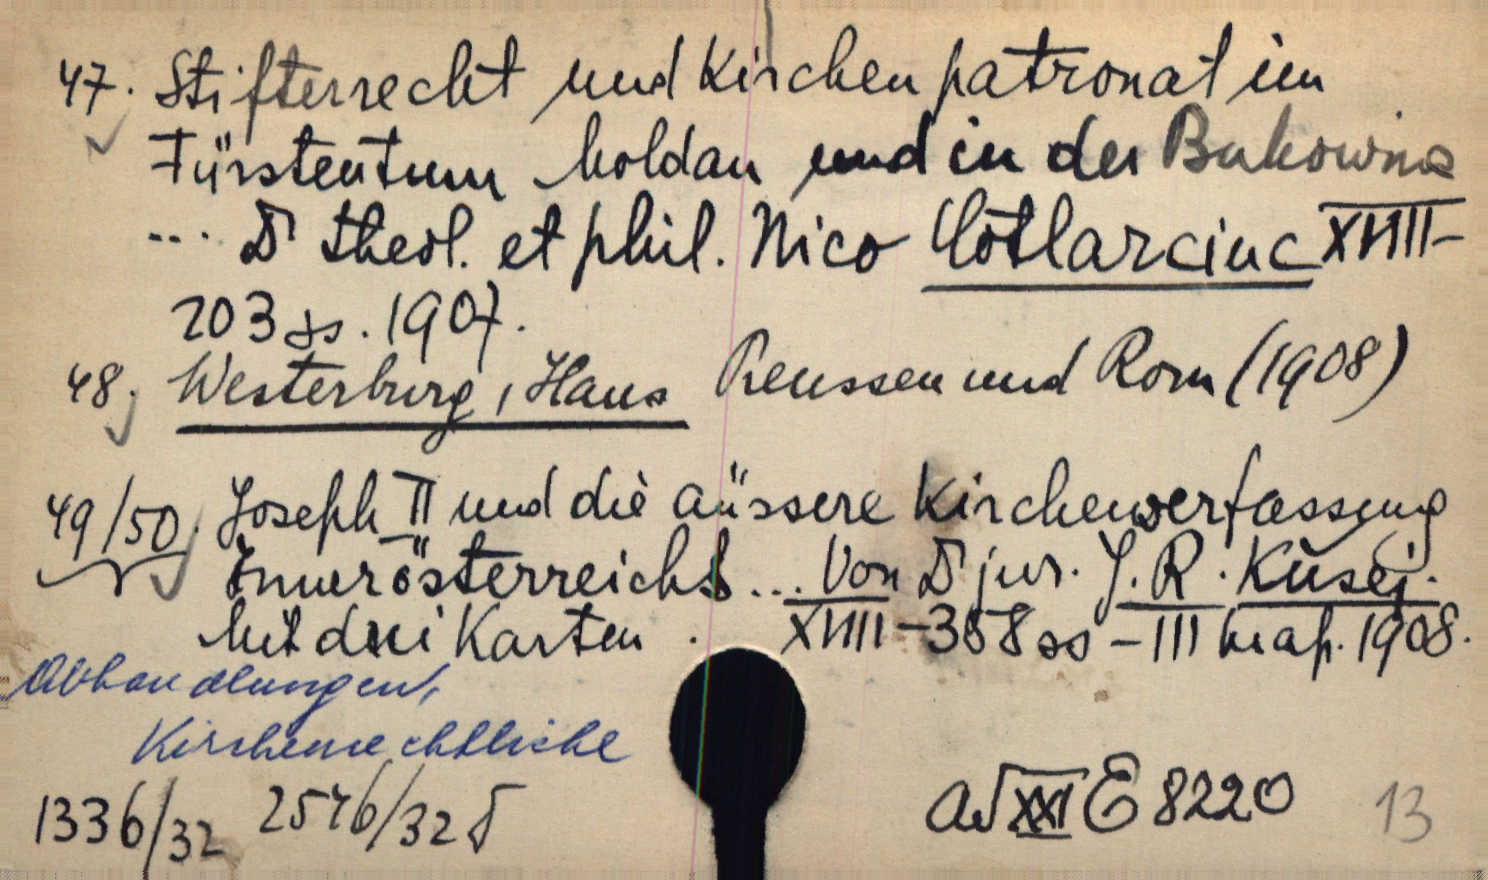 47. Stifterrecht und Kirchenpatronat im
Fürstentum Moldau und in der Bukowina
... Dr theol. et phil. Nico Cotlarciuc XVIII-
203 ss. 1907.
48. Westerburg, Hans Preussen und Rom (1908)
49/50. Joseph II und die äüssere Kirchenverfassung
Innerösterreichs ... Von Dr jur. J. R. Kušej.
Mit drei Karten. XVIII-358 ss - III map. 1908.
Abhandlungen,
Kirchenrechtliche
1336/32 2576/32
XXI E 8220 13